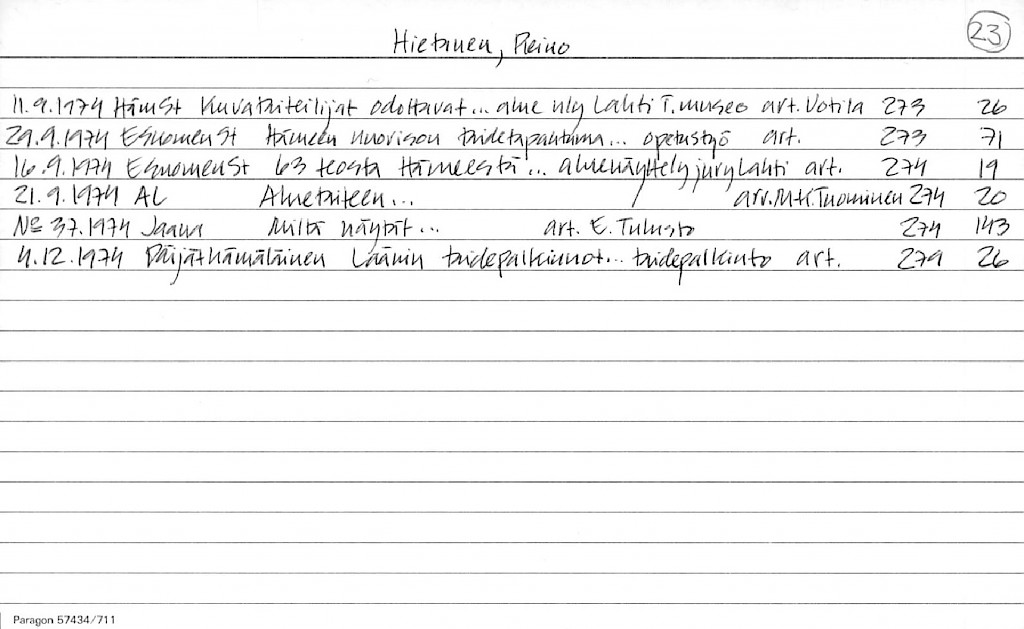 Hietanen, Reino
23
11.9.1974 HämSt Kuvataiteilijat odottavat... alue nly Lahti T.museo art. Uotila 273 26
29.9.1974 ESuomenSt Hämeen nuorison taidetapahtuma... opetustyö art. 273 71
16.9.1974 ESuomenSt 63 teosta Hämeestä... aluenäyttely jury Lahti art. 274 19
21.9.1974 AL Aluetaiteen... arv. M-H. Tuominen 274 20
No 37.1974 Jaana Miltä näytät... art. E. Tulusto 274 143
4.12.1974 Päijäthämäläinen Läänin taidepalkinnot... taidepalkinto art. 279 26
Paragon 57434/711